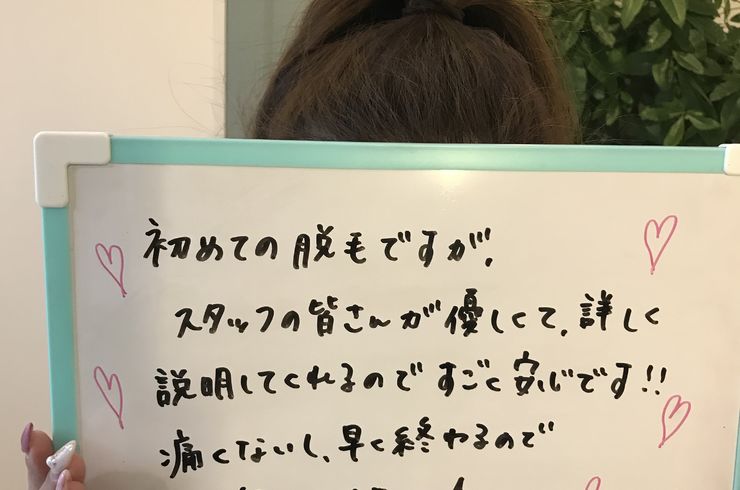 初めての脱毛ですが、
スタッフの皆さんが優しくて、詳しく
説明してくれるのですごく安心です!!
痛くないし、早く終わるので